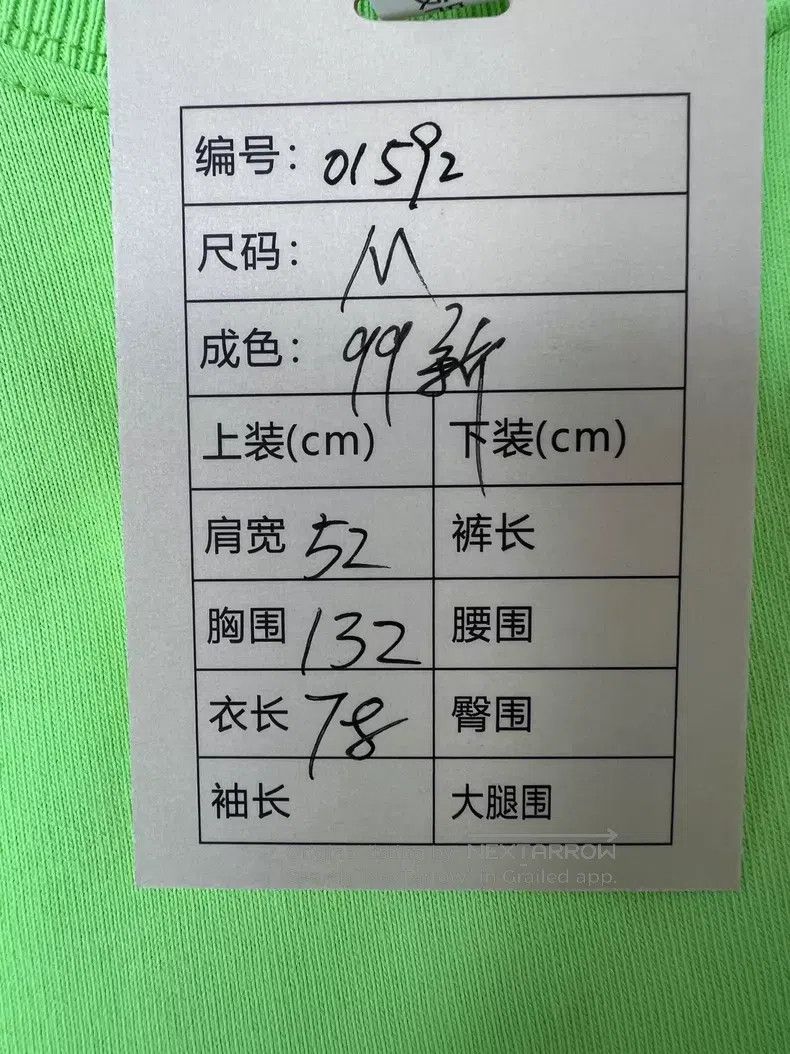 编号: 01592
尺码: M
成色: 99新
上装(cm) 下装(cm)
肩宽 52 裤长
胸围 132 腰围
衣长 78 臀围
袖长 大腿围
NEXTARROW
in Grailed app.